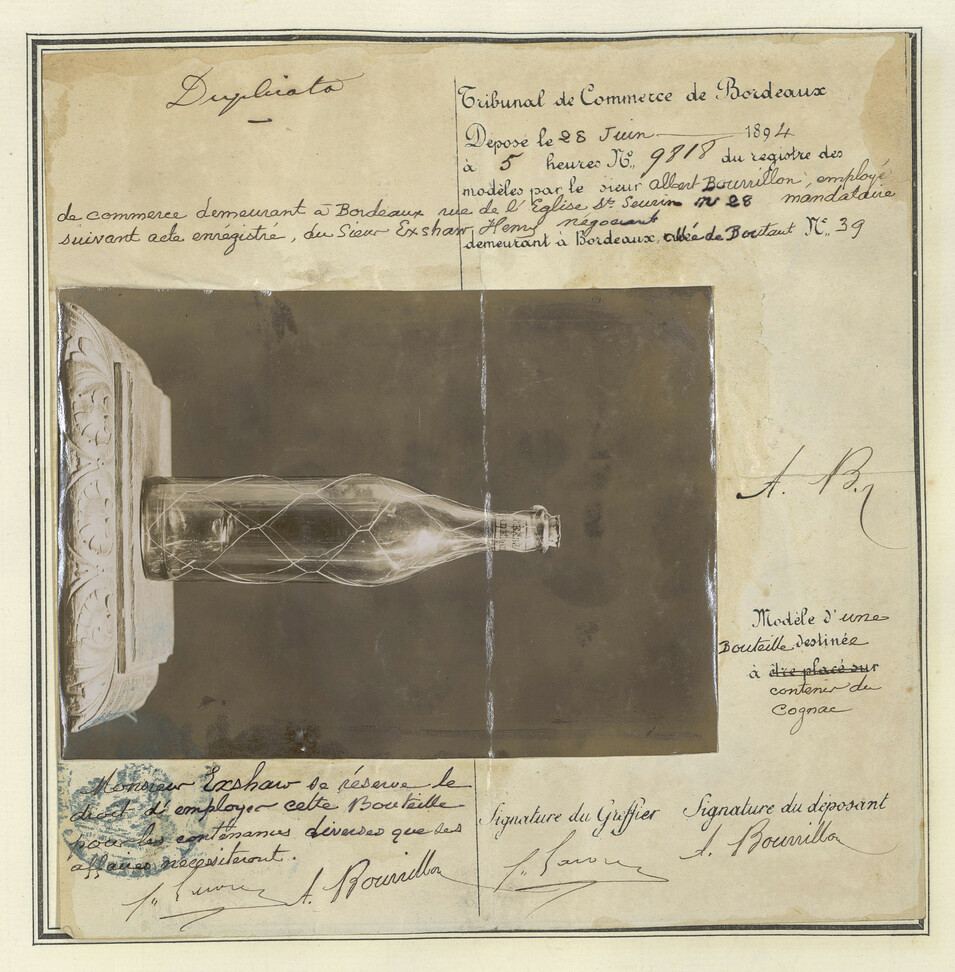 Duplicata
Tribunal de Commerce de Bordeaux
Déposé le 28 Juin 1894
à 5 heures N° 9818 du registre des
modèles par le sieur Albert Bourrillon, employé
de commerce demeurant à Bordeaux rue de l'Eglise St Seurin n° 28 mandataire
suivant acte enrégistré, du Sieur Exshaw Henry négociant
demeurant à Bordeaux, allée de Boutaut N° 39
A. B.
Modèle d'une
Bouteille destinée
à être placé sur
contenir du
Cognac
Monsieur Exshaw se réserve le
droit d'employer cette Bouteille
pour les contenances diverses que ses
affaires nécesiteront.
A. Bourrillon
Signature du Greffier
Signature du déposant
A. Bourrillon